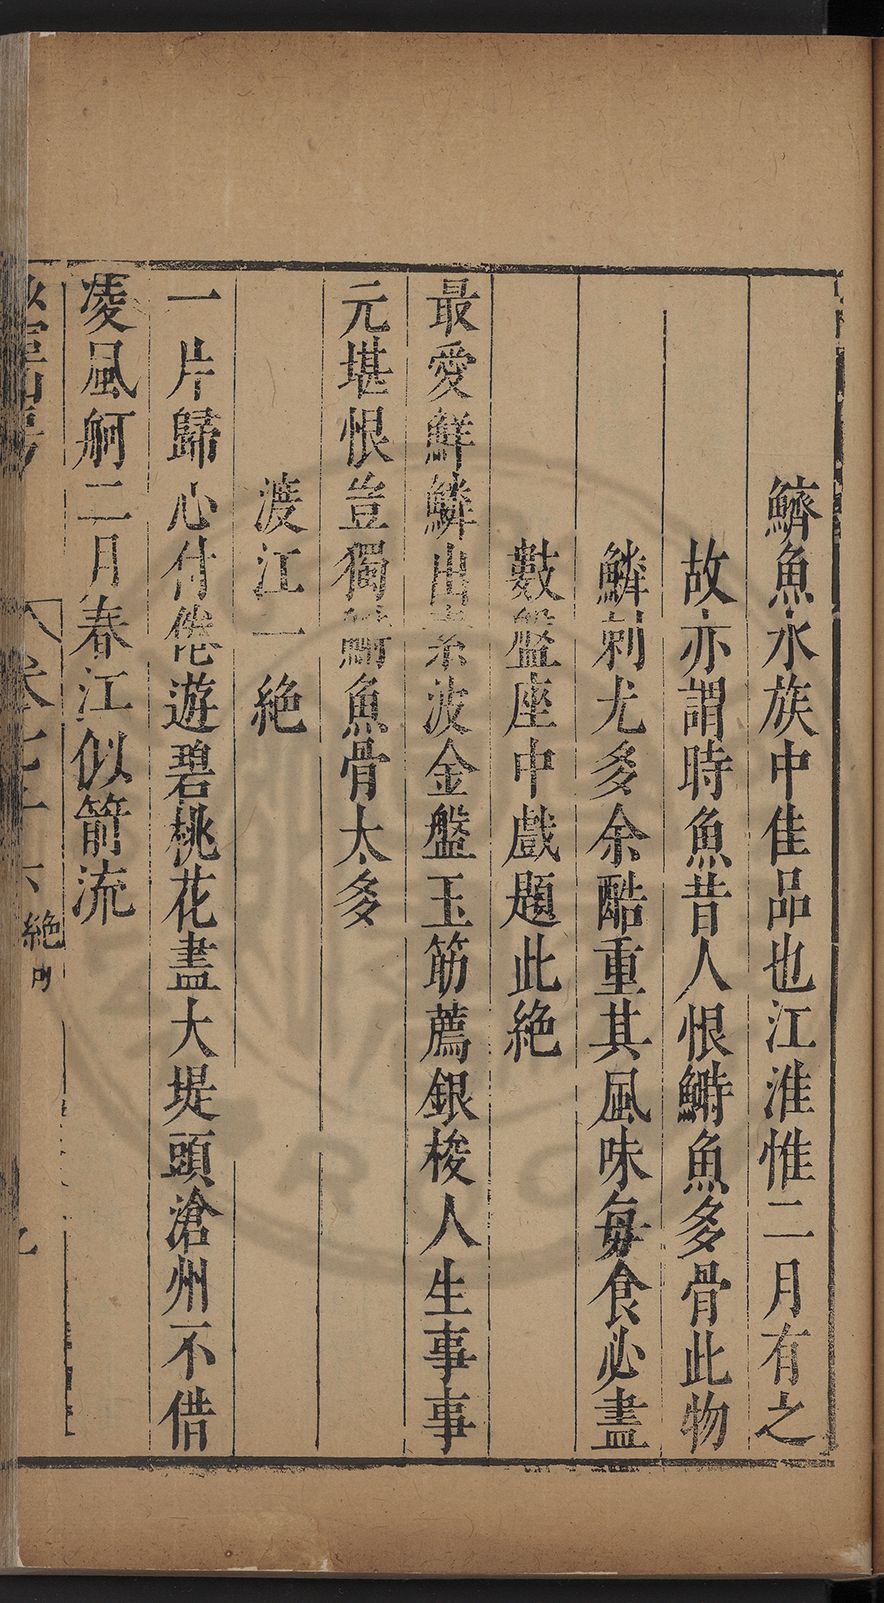 鱭魚水族中佳品也江淮惟二月有之
故亦謂時魚昔人恨鰣魚多骨此物
鱗刺尤多余酷重其風味每食必盡
數盤座中戲題此絕
最愛鮮鱗出素波金盤玉筋薦銀梭人生事事
元堪恨豈獨鰣魚骨太多
渡江一絕
一片歸心付倦遊碧桃花盡大堤頭滄州不借
凌風舸二月春江似箭流
卷七十六 絕句 九